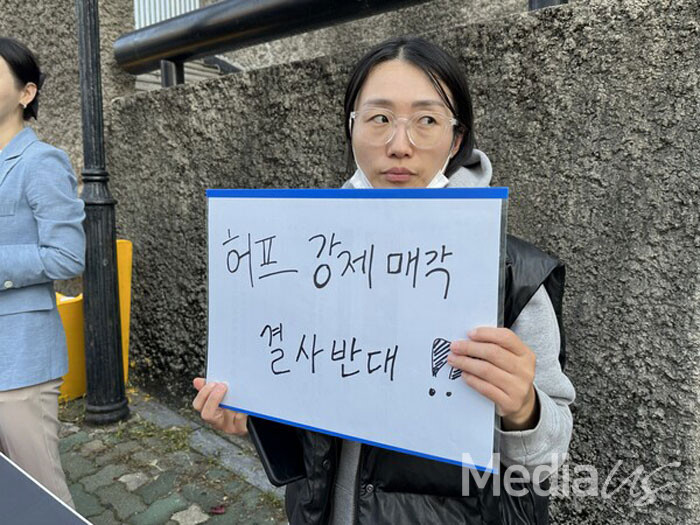 허프 강제 매각
결사반대 !!
Media us